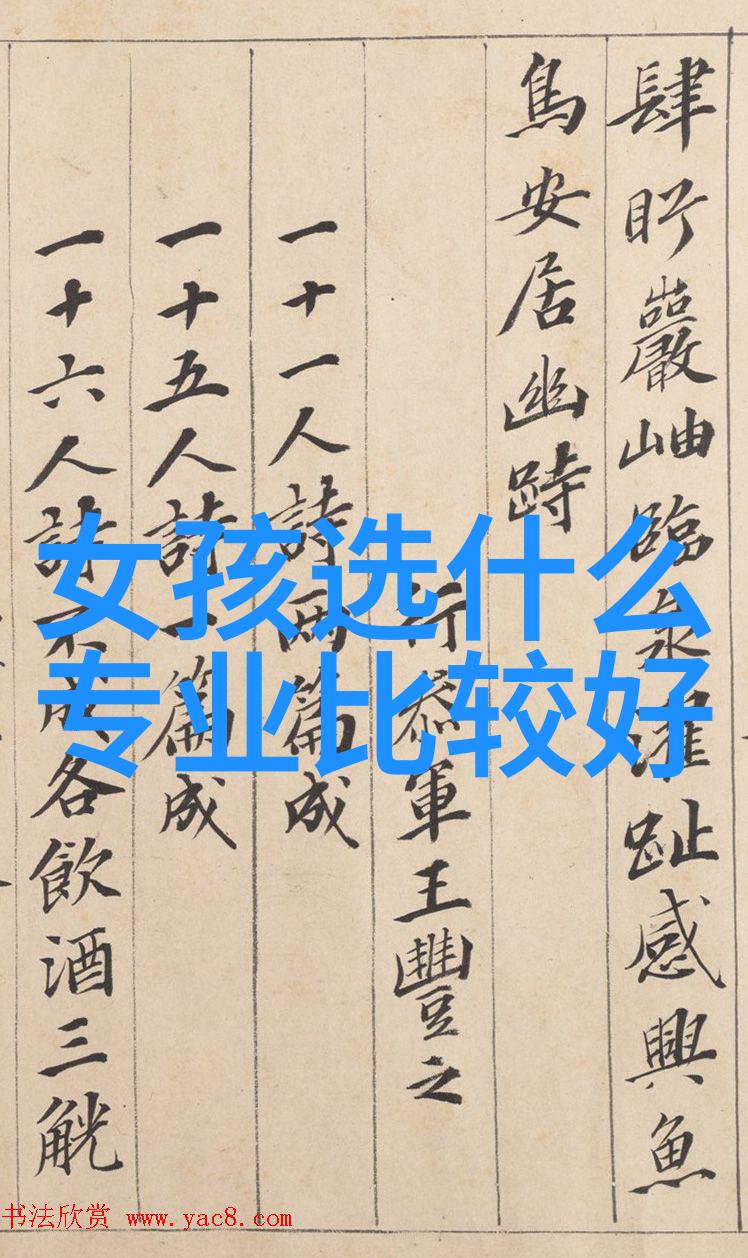 肆眄巖岫臨泉濯趾感興魚
鳥安居幽跱
行叅軍王豐之
一十一人詩兩篇成
一十五人詩一篇成
一十六人詩不成各飲酒三觥
女孩选什么
专业比较好
书法欣赏 www.yac8.com